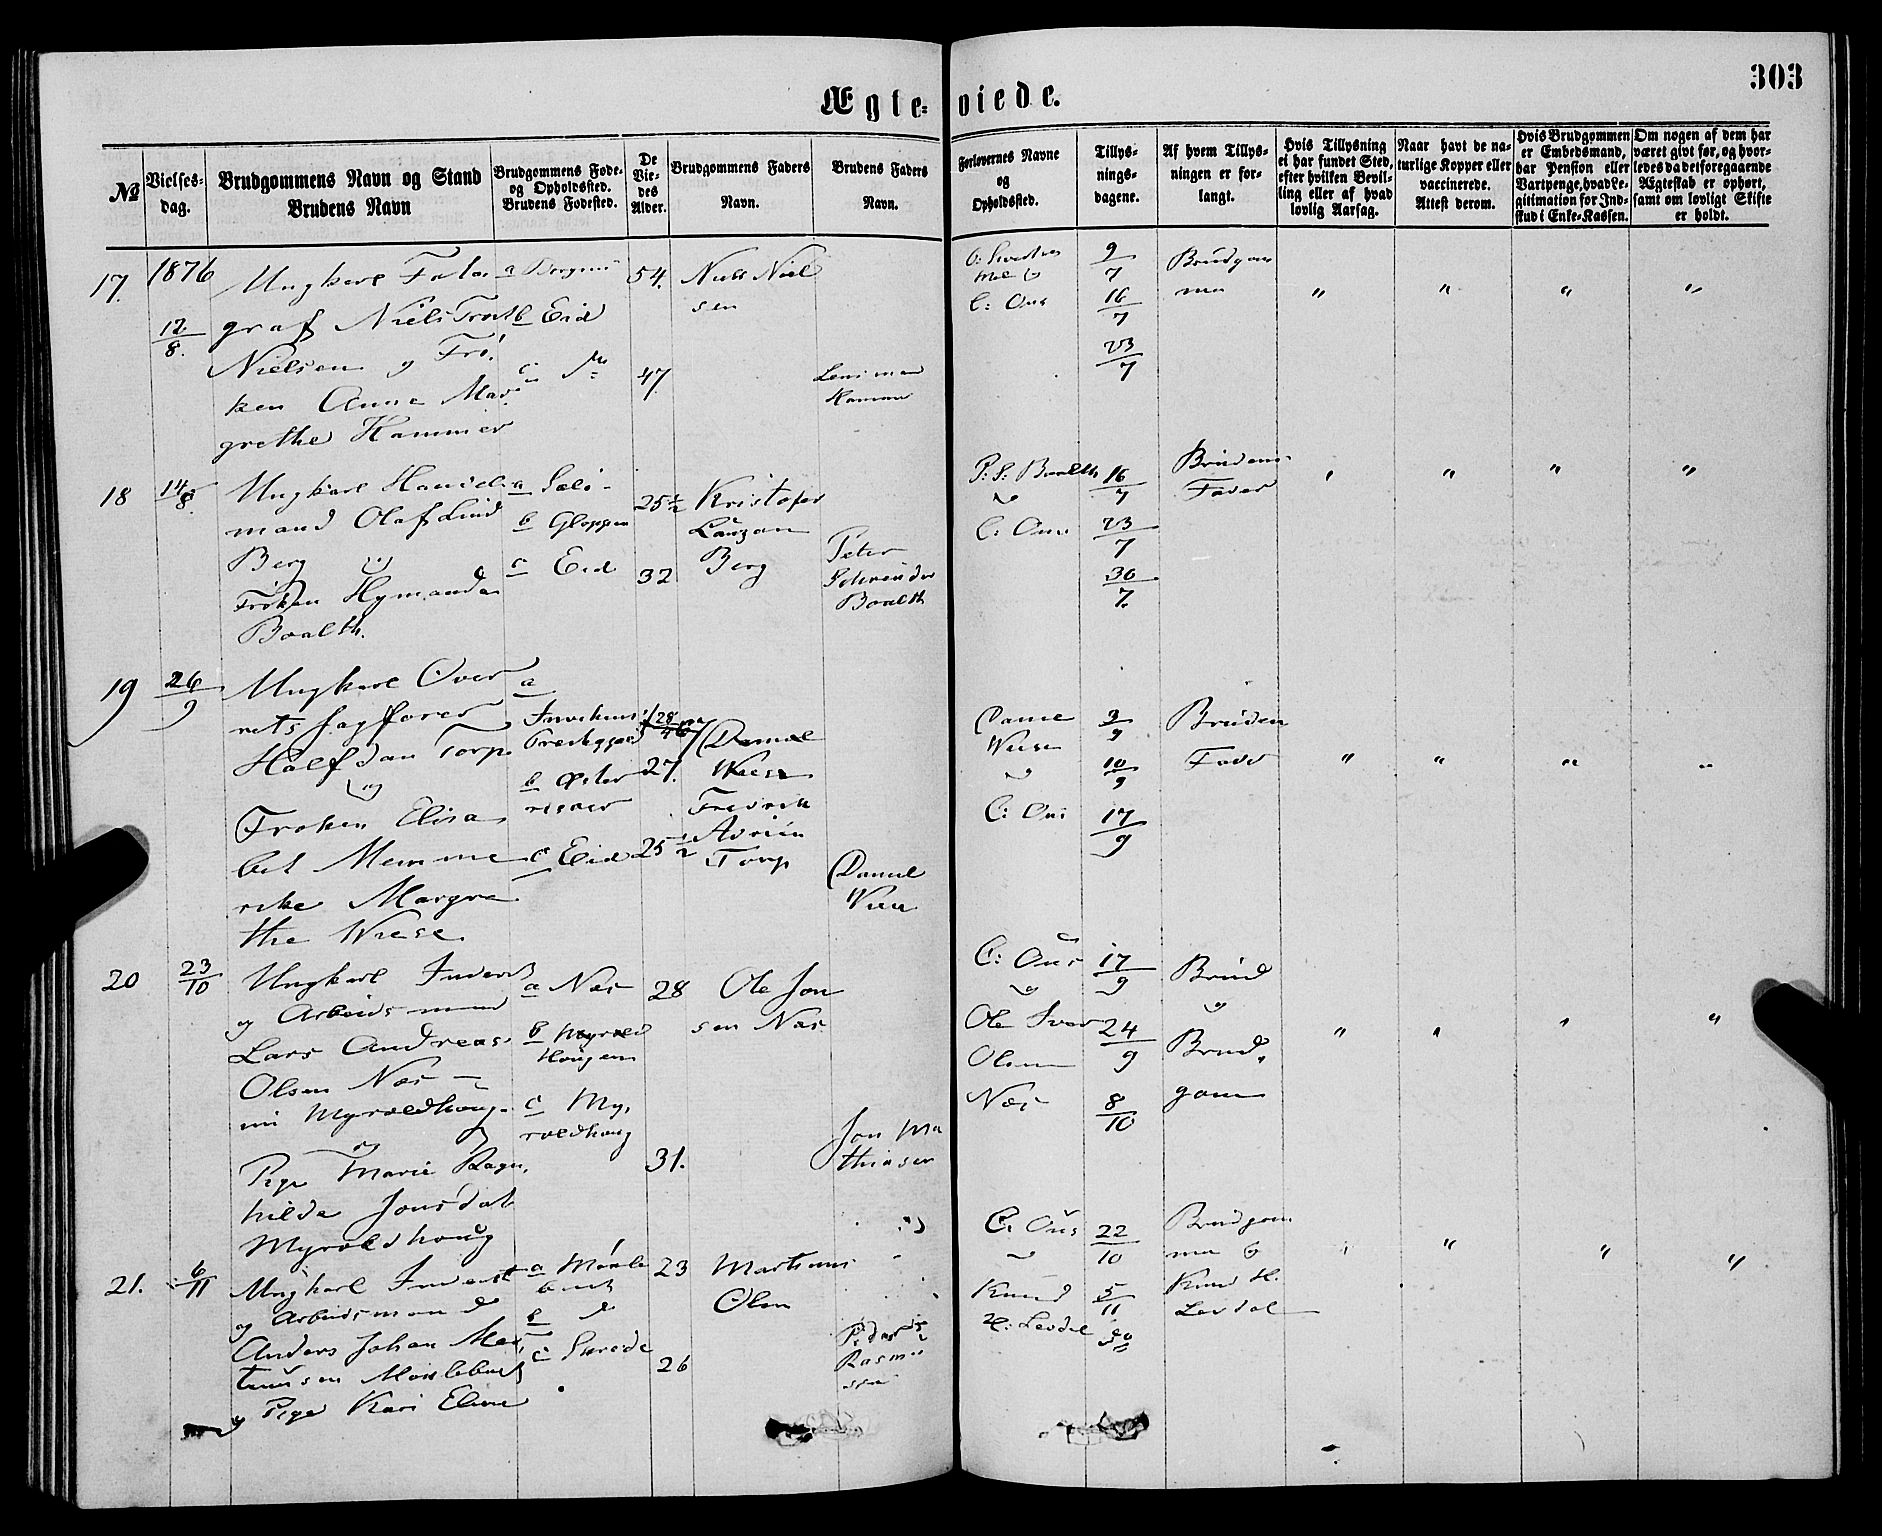 303
Ægte-viede.
№
Vielses-
dag.
Brudgommens Navn og Stand
Brudens Navn
Brudgommens Føde-
og Opholdssted.
Brudens Fødested.
De
Vie-
des
Alder.
Brudgommens Faders
Navn.
Brudens Faders
Navn.
Forlovernes Navne
og
Opholdssted.
Tillys-
nings-
dagene.
Af hvem Tillys-
ningen er for-
langt.
Hvis Tillysning
ei har fundet Sted,
efter hvilken Bevil-
ling eller af hvad
lovlig Aarsag.
Naar havt de na-
turlige Kopper eller
vaccinerede.
Attest derom.
Hvis Brudgommen
er Embedsmand,
har Pension eller
Vartpenge, hvad Le-
gitimation for Ind-
skud i Enke-Kassen.
Om nogen af dem har
været givt før, og hvor-
ledes da det foregaaende
Ægteskab er ophørt,
samt om lovligt Skifte
er holdt.
17.
1876
12/8.
Ungkarl Foto
graf Niels
Nielsen og Frø.
ken Anne Mar.
grethe Hammer
a Bergen
b Eid
c
54.
47.
Niels Niel
sen
Lensmand
Hammer
C: Ous
9/7
16/7
23/7
Brudgom
men
" " " "
18
14/8
Ungkarl Handels
mand Olaf Lind
Berg og
Frøken Hymanda
Boalth.
a
b Gloppen
c Eid
25 1/2
32
Kristofer
Berg
Peter
Schrøuder
Boalth
P: S: Boalth
C: Ous
16/7
23/7
30/7.
Brudens
Fader
" " " "
19
26/9
Ungkarl Over
rets Sagfører
Halfdan Torp
og
Frøken Elisa
bet Memme
rike Margre
the Wiese
a
b Øster
risøer
c Eid
27.
25 1/2
Daniel
Wiese
Fredrik
Torp
Daniel
Wiese
Daniel
Wiese
C: Ous
3/9
10/9
17/9
Bruden
Fader
" " " "
20
23/10
Ungkarl Inderst
og Arbeidsmand
Lars Andreas
Olsen Næs
Myroldhoug.
og
Pige Marie Ragn.
hilde Jonsdat
Myroldhoug
a Næs
b Myrold
Hougen
c My.
roldhoug
28
31.
Ole Jon
sen Næs
Jon Ma
thiasen
C: Ous
og
Ole Iver
Olsen
Næs
17/9
24/9
8/10
Brud
og
Brud.
gom
" " " "
21.
6/11
Ungkarl Inderst
og Arbeidsmand
Anders Johan Mar
tinusen
og Pige Kari Eline
a
b
c
23
26
Martinus
Olsen
Rasmu
sen
C: Ous
og
Knud
H: Levdal
22/10
5/11
do
Brudgom
men &
Knud H.
Levdal
" " " "